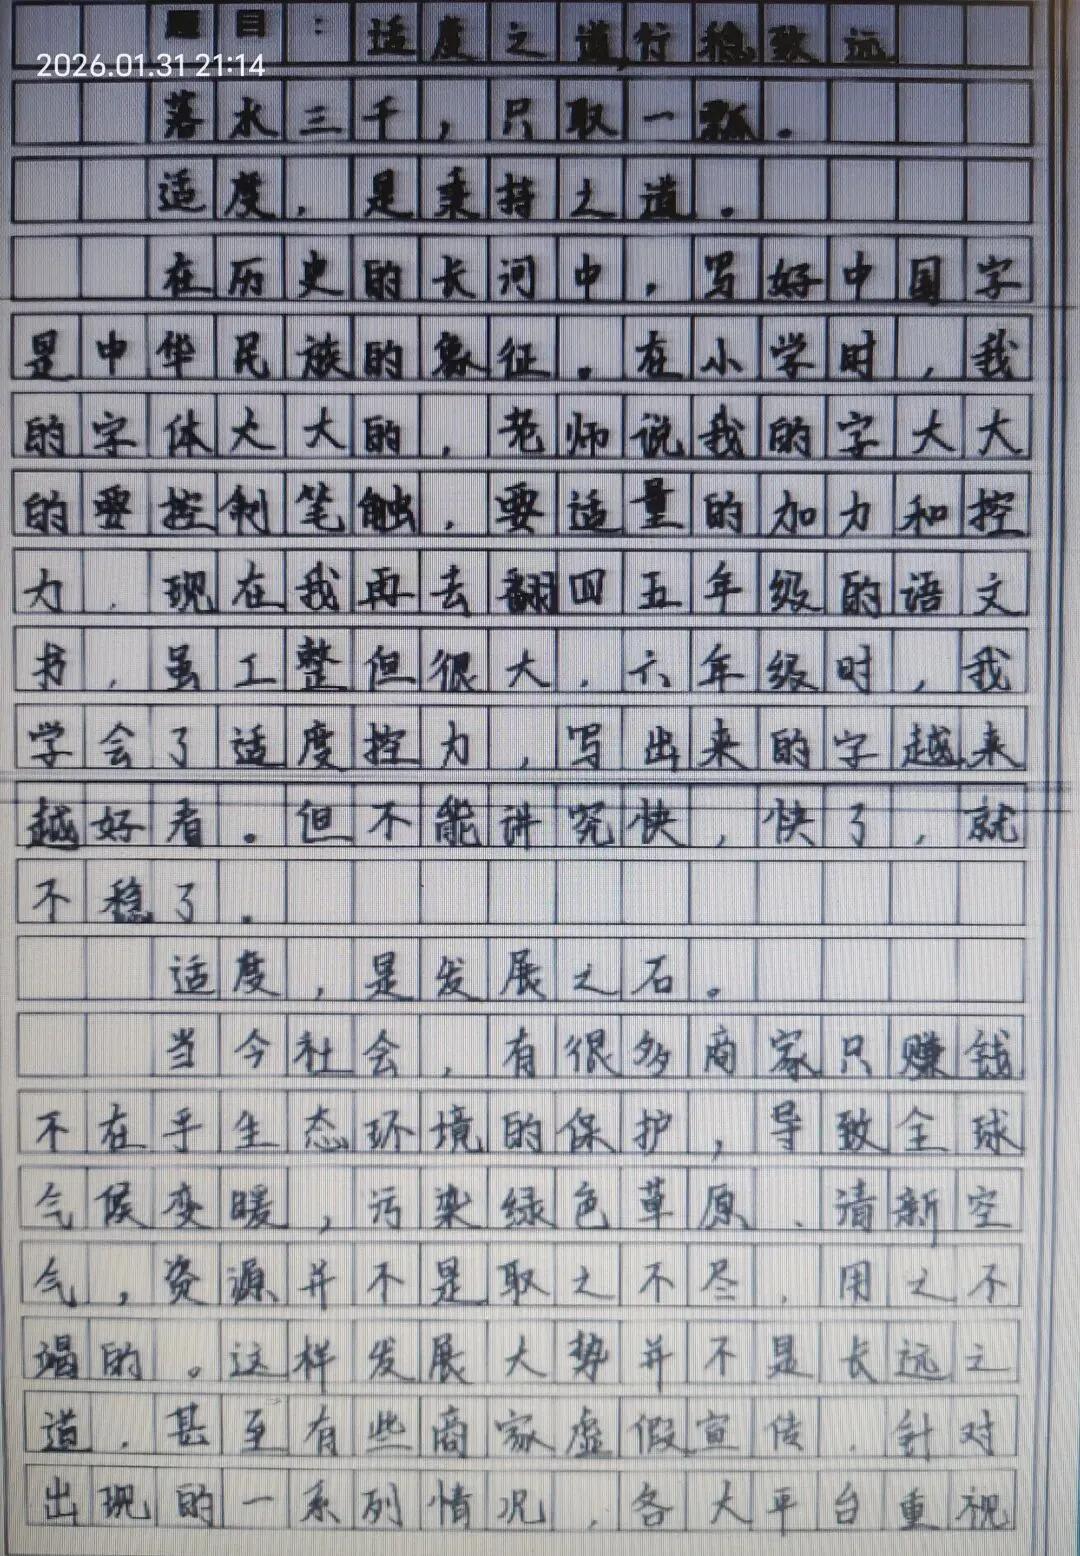 题目：适度之道,行稳致远
2026.01.31 21:14
落水三千，只取一瓢。
适度，是秉持之道。
在历史的长河中，写好中国字
是中华民族的象征。在小学时，我
的字体大大的，老师说我的字大大
的要控制笔触，要适量的加力和控
力，现在我再去翻四五年级的语文
书，虽工整但很大，六年级时，我
学会了适度控力，写出来的字越来
越好看。但不能讲究快，快了，就
不稳了。
适度，是发展之石。
当今社会，有很多商家只赚钱
不在乎生态环境的保护，导致全球
气候变暖，污染绿色草原、清新空
气，资源并不是取之不尽，用之不
竭的。这样发展大势并不是长远之
道，甚至有些商家虚假宣传，针对
出现的一系列情况，各大平台重视